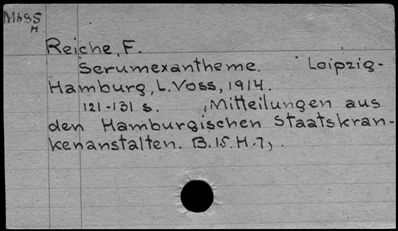 M685
H
Reiche, F.
Serumexantheme. Leipzig-
Hamburg, L. Voss, 1914.
121-131 s. , Mitteilungen aus
den Hamburgischen Staatskran-
kenanstalten. B. 15. H. 7, .